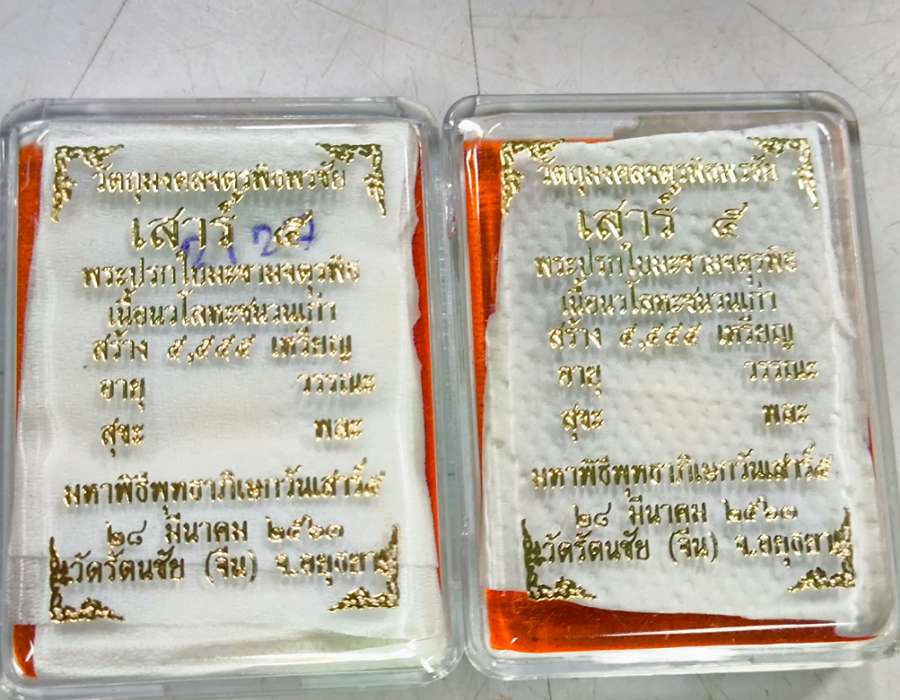 วัตถุมงคลจตุรพิธพรชัย
เสาร์ ๕
2,27
พระปรกใบมะขามจตุรพิธ
เนื้อนวโลหะชนวนเก่า
สร้าง ๕,๕๕๕ เหรียญ
อายุ วรรณะ
สุขะ พละ
มหาพิธีพุทธาภิเษกวันเสาร์๕
๒๘ มีนาคม ๒๕๖๓
วัดรัตนชัย (จีน) จ.อยุธยา
วัตถุมงคลจตุรพิธพรชัย
เสาร์ ๕
พระปรกใบมะขามจตุรพิธ
เนื้อนวโลหะชนวนเก่า
สร้าง ๕,๕๕๕ เหรียญ
อายุ วรรณะ
สุขะ พละ
มหาพิธีพุทธาภิเษกวันเสาร์๕
๒๘ มีนาคม ๒๕๖๓
วัดรัตนชัย (จีน) จ.อยุธยา